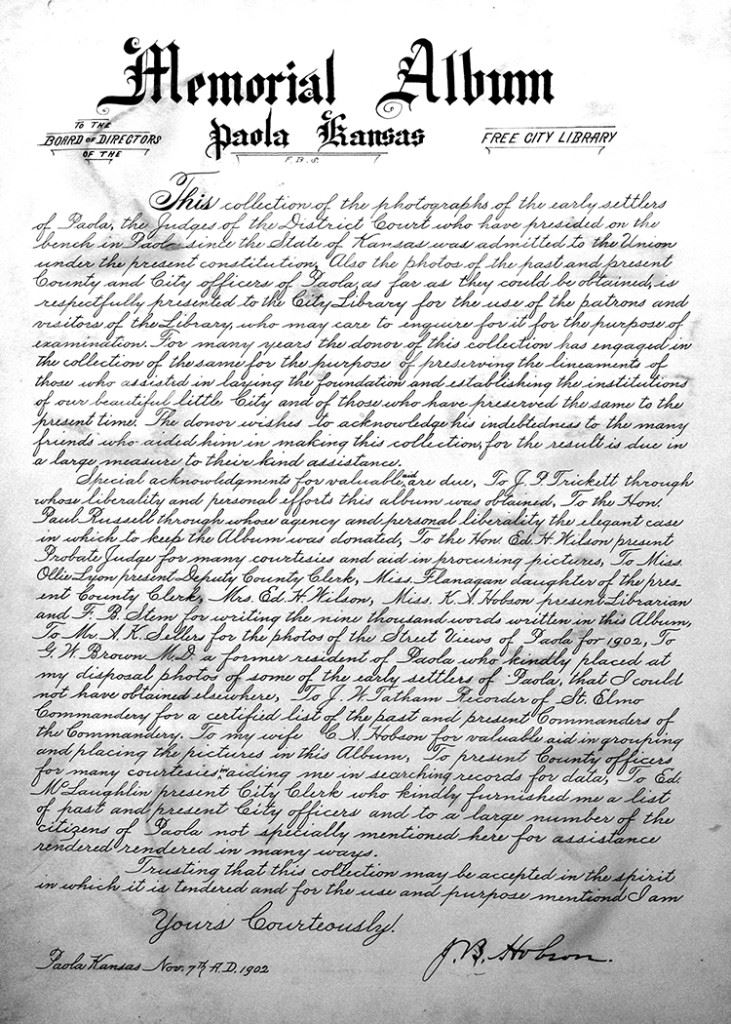 Memorial Album
TO THE
BOARD OF DIRECTORS
OF THE
Paola Kansas
F.B.S.
FREE CITY LIBRARY
This collection of the photographs of the early settlers
of Paola, the Judges of the District Court who have presided on the
bench in Paola since the State of Kansas was admitted to the Union
under the present constitution. Also the photos of the past and present
County and City officers of Paola, as far as they could be obtained, is
respectfully presented to the City Library for the use of the patrons and
visitors of the Library, who may care to enquire for it for the purpose of
examination. For many years the donor of this collection has engaged in
the collection of the same for the purpose of preserving the lineaments of
those who assistrd in laying the foundation and establishing the institutions
of our beautiful little City and of those who have preserved the same to the
present time. The donor wishes to acknowledge his indebtedness to the many
friends who aided him in making this collection, for the result is due in
a large measure to their kind assistance.
Special acknowledgments for valuable aid are due, To J. P. Trickett through
whose liberality and personal efforts this album was obtained, To the Hon.
Paul Russell through whose agency and personal liberality the elegant case
in which to keep the Album was donated, To the Hon. Ed. H. Wilson present
Probate Judge for many courtesies and aid in procuring pictures, To Miss.
Ollie Lyon present Deputy County Clerk, Miss. Flanagan daughter of the pres-
ent County Clerk, Mrs. Ed. H. Wilson, Miss. K. A. Hobson present Librarian
and F. B. Stem for writing the nine thousand words written in this Album,
To Mr. A. K. Sellers for the photos of the Street Views of Paola for 1902, To
G. W. Brown M.D. a former resident of Paola who kindly placed at
my disposal photos of some of the early settlers of Paola, that I could
not have obtained elsewhere, To J. W. Tatham Recorder of St. Elmo
Commandery for a certified list of the past and present Commanders of
the Commandery. To my wife C. A. Hobson for valuable aid in grouping
and placing the pictures in this Album, To present County officers
for many courtesies in aiding me in searching records for data, To Ed.
McLaughlin present City Clerk who kindly furnished me a list
of past and present City officers and to a large number of the
citizens of Paola not specially mentioned here for assistance
rendered rendered in many ways.
Trusting that this collection may be accepted in the spirit
in which it is tendered and for the use and purpose mentiond I am
Yours Courteously.
J. B. Hobson.
Paola Kansas Nov. 7th A.D. 1902